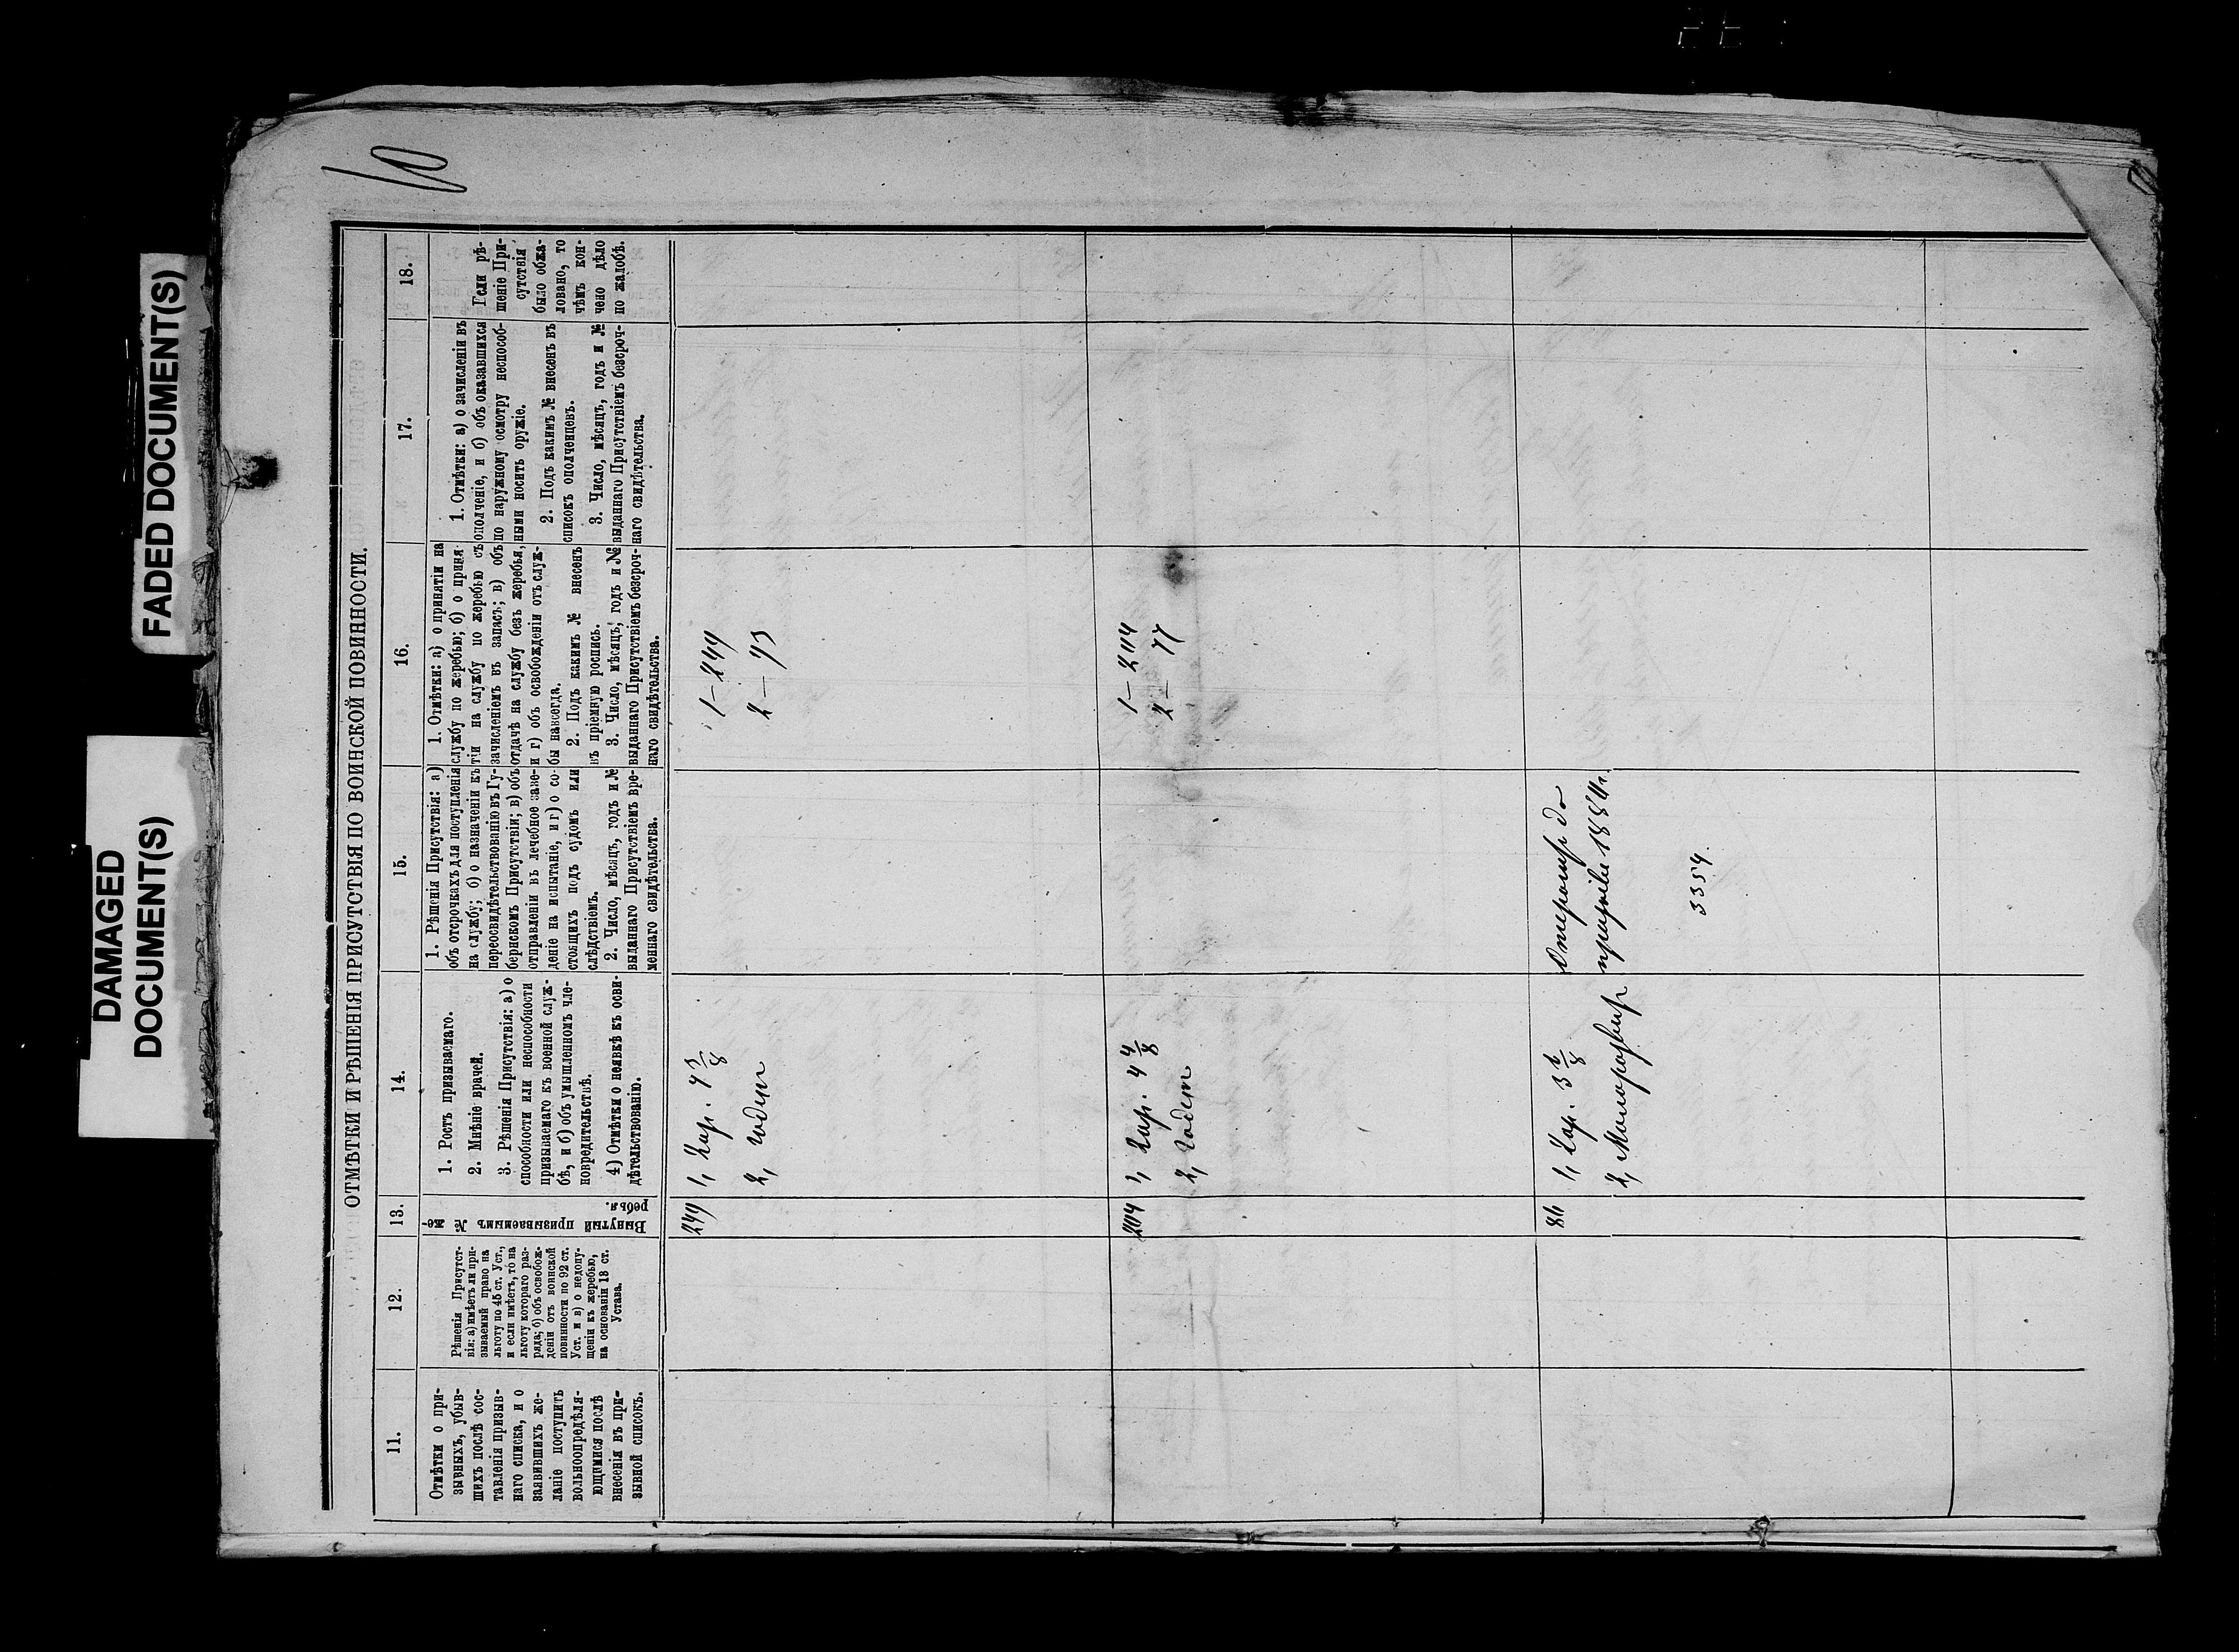 DAMAGED
DOCUMENT(S)
FADED DOCUMENT(S)
10
ОТМѢТКИ И РѢШЕНІЯ ПРИСУТСТВІЯ ПО ВОИНСКОЙ ПОВИННОСТИ.
11.
Отмѣтки о при-
зывныхъ, убыв-
шихъ послѣ сос-
тавленія призыв-
наго списка, и о
заявившихъ же-
ланіе поступить
вольноопредѣля-
ющимися послѣ
внесенія въ при-
зывной списокъ.
12.
Рѣшенія Присутст-
вія: а) имѣетъ ли при-
зываемый право на
льготу по 45 ст. Уст.,
и если имѣетъ, то на
льготу котораго раз-
ряда; б) объ освобож-
деніи отъ воинской
повинности по 92 ст.
Уст. и в) о недопу-
щеніи къ жеребью,
на основаніи 18 ст.
Устава.
13.
Вынутый призываемымъ № же-
ребья.
14.
1. Ростъ призываемаго.
2. Мнѣніе врачей.
3. Рѣшенія Присутствія: а) о
способности или неспособности
призываемаго къ военной служ-
бѣ, и б) объ умышленномъ чле-
новредительствѣ.
4) Отмѣтки о неявкѣ къ осви-
дѣтельствованію.
15.
1. Рѣшенія Присутствія: а)
объ отсрочкахъ для поступленія
на службу; б) о назначеніи къ
переосвидѣтельствованію въ Гу-
бернскомъ Присутствіи; в) объ
отправленіи въ лечебное заве-
деніе на испытаніе, и г) о со-
стоящихъ подъ судомъ или
слѣдствіемъ.
2. Число, мѣсяцъ, годъ и №
выданнаго Присутствіемъ вре-
меннаго свидѣтельства.
16.
1. Отмѣтки: а) о принятіи на
службу по жеребью; б) о приня-
тіи на службу по жеребью съ
зачисленіемъ въ запасъ; в) объ
отдачѣ на службу безъ жеребья,
и г) объ освобожденіи отъ служ-
бы навсегда.
2. Подъ какимъ № внесенъ
въ пріемную роспись.
3. Число, мѣсяцъ, годъ и №
выданнаго Присутствіемъ безсроч-
наго свидѣтельства.
17.
1. Отмѣтки: а) о зачисленіи въ
ополченіе, и б) объ оказавшихся
по наружному осмотру неспособ-
ными носить оружіе.
2. Подъ какимъ № внесенъ въ
списокъ ополченцевъ.
3. Число, мѣсяцъ, годъ и №
выданнаго Присутствіемъ безсроч-
наго свидѣтельства.
18.
Если рѣ-
шеніе При-
сутствія
было обжа-
ловано, то
чѣмъ кон-
чено дѣло
по жалобѣ.
1,
2, годен
1,
2, годен
84
1,
2,
до
1884 г.
3354.